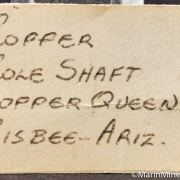 Copper
Cole Shaft
Copper Queen
Bisbee-Ariz.
©MarinMine